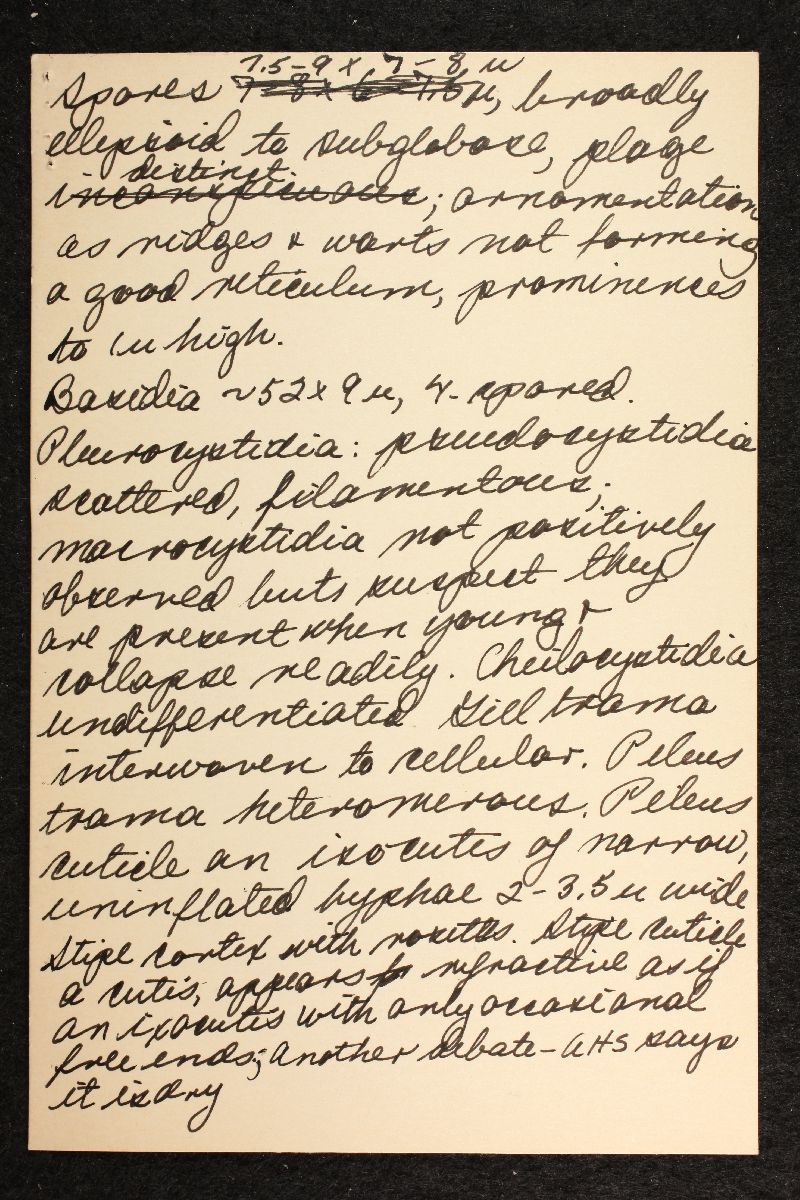 7.5-9 x 7-8 u
Spores 7-8 x 6-7.5u, broadly
ellipsoid to subglobose, plage
distinct
inconspicuous; ornamentation
as ridges & warts not forming
a good reticulum, prominences
to 1u high.
Basidia ~52x9u, 4-spored.
Pleurocystidia: pseudocystidia
scattered, filamentous;
macrocystidia not positively
observed but suspect they
are present when young &
collapse readily. Cheilocystidia
undifferentiated Gill trama
interwoven to cellular. Pileus
trama heteromerous. Pileus
cuticle an ixocutis of narrow,
uninflated hyphae 2-3.5u wide
Stipe cortex with rosetts. Stipe cuticle
a cutis, appears refractive as if
an ixocutis with only occasional
free ends; another debate - AHS says
it is dry